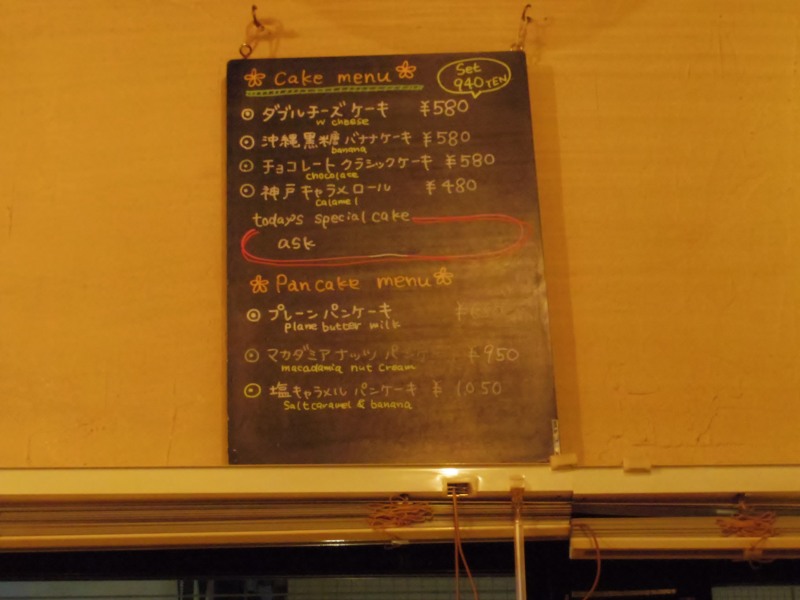 Cake menu
Set
940 YEN
ダブルチーズケーキ ¥580
w cheese
沖縄黒糖バナナケーキ ¥580
banana
チョコレートクラシックケーキ ¥580
chocolate
神戸キャラメロール ¥480
calamel
today's special cake
ask
Pancake menu
プレーンパンケーキ
plane butter milk
マカダミアナッツ パンケーキ ¥950
macadamia nut cream
塩キャラメル パンケーキ ¥1,050
Salt caramel & banana